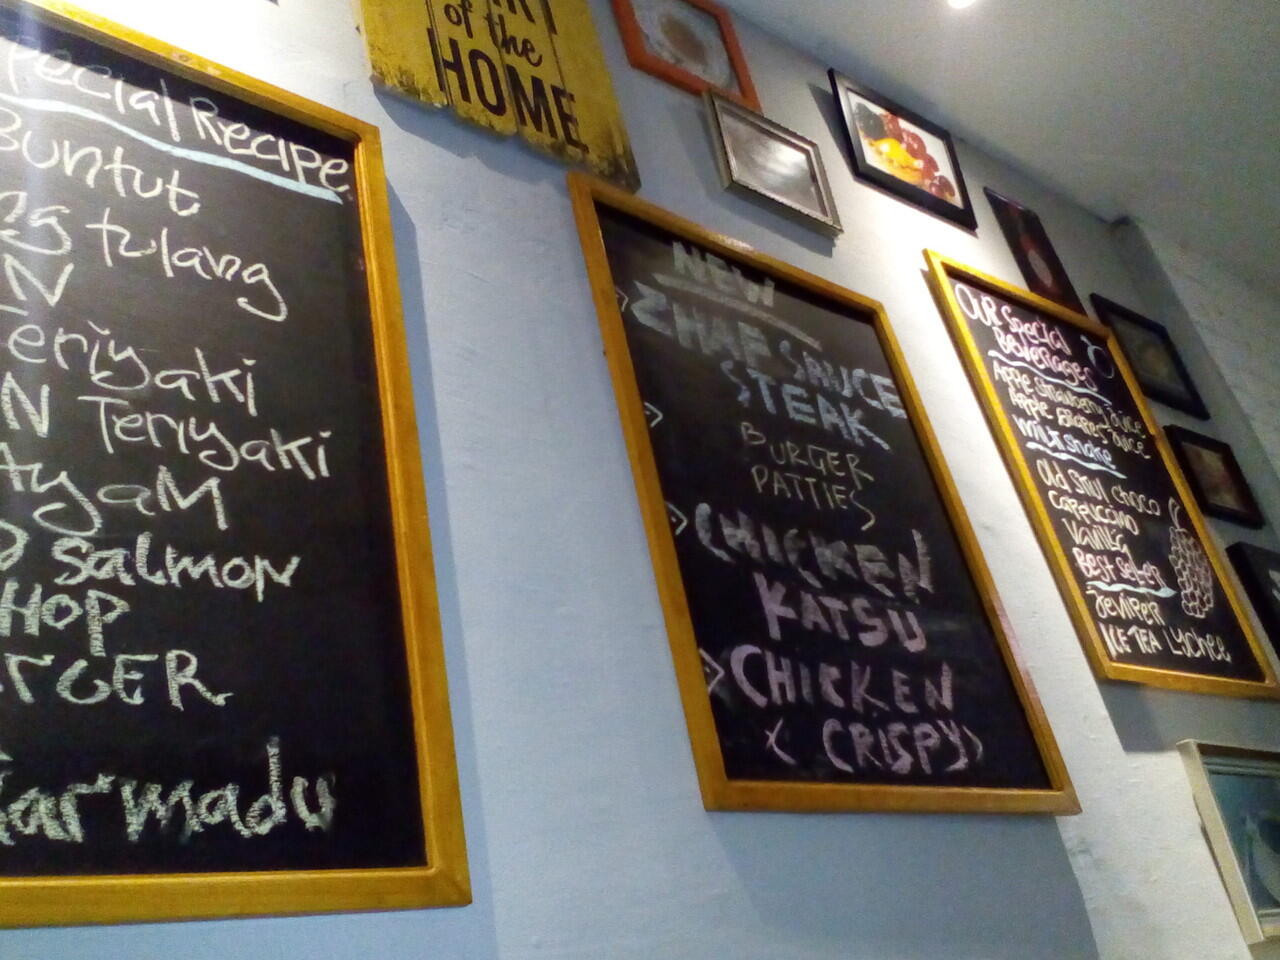 of the
HOME
pecial Recipe
Buntut
tulang
N
eriyaki
N Teriyaki
Ayam
salmon
HOP
GER
armadu
NEW
CHAF SAUCE
STEAK
BURGER
PATTIES
CHICKEN
KATSU
CHICKEN
< CRISPY>
OUR Special
Beverages
Apple strawberry Juice
Apple grapes Juice
Milk shake
Old Skul choco
Cappucino
Vanilla
Best Seller
Jeniper
ICE TEA Lychee